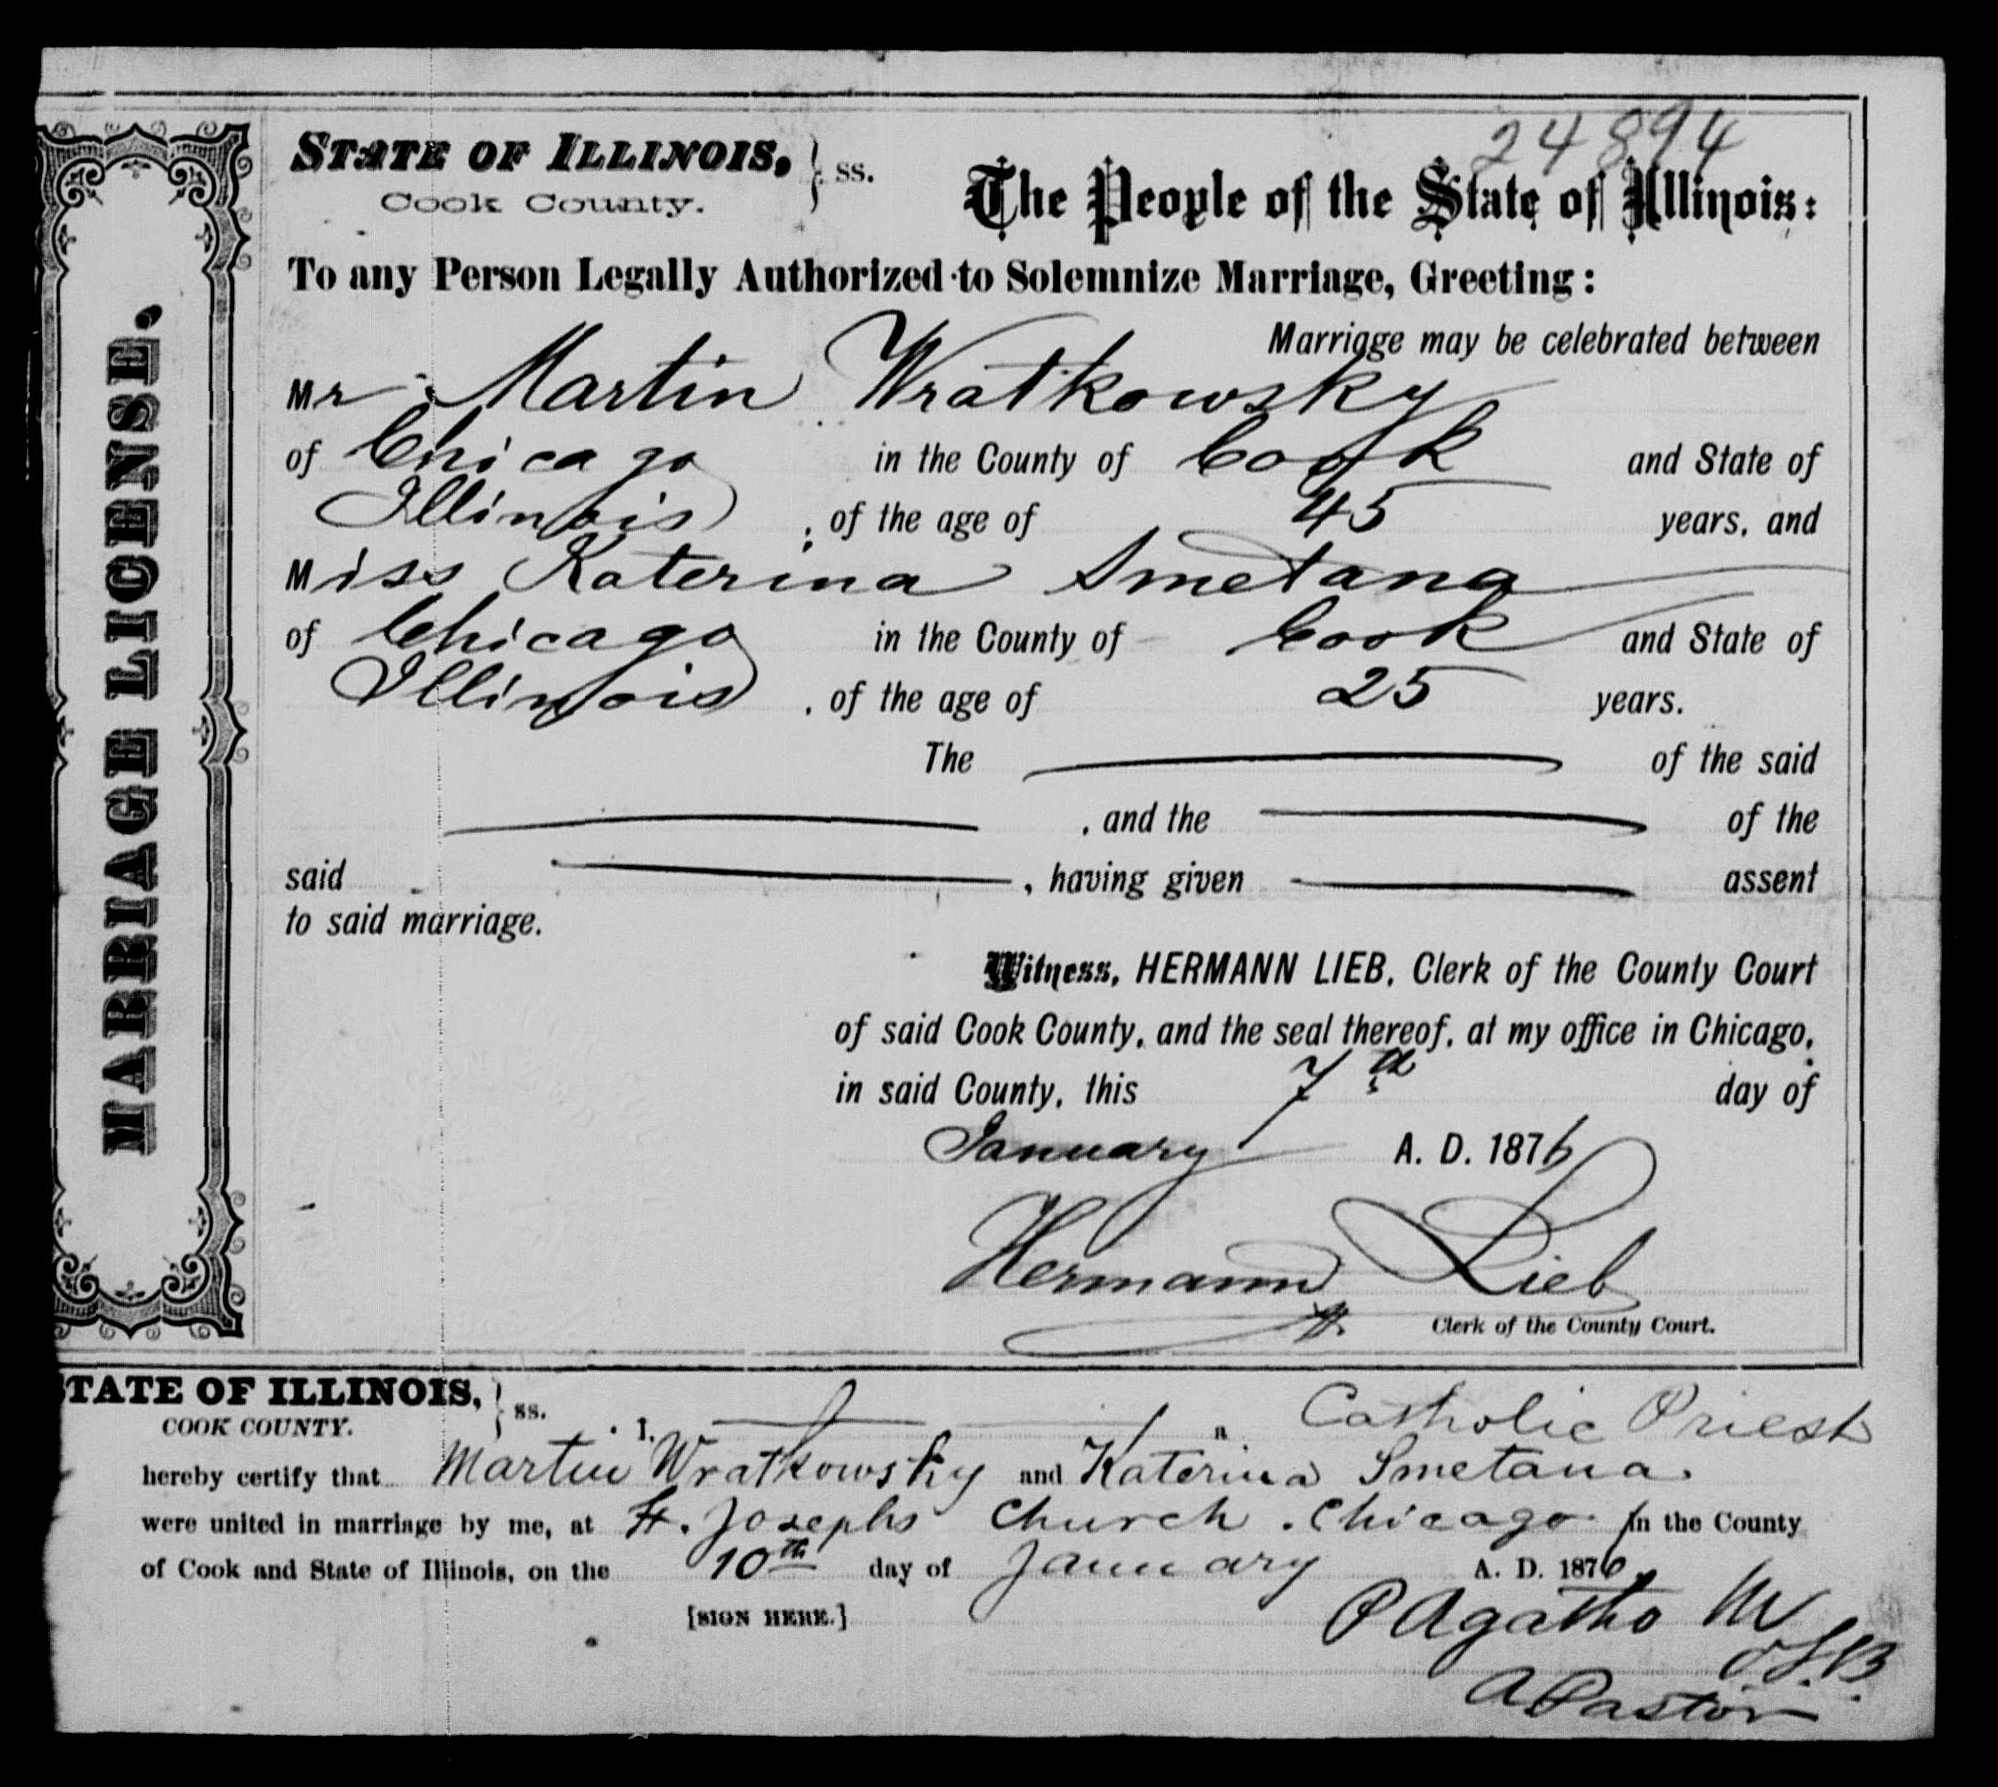 24894
STATE OF ILLINOIS, } ss.
Cook County.
The People of the State of Illinois:
To any Person Legally Authorized to Solemnize Marriage, Greeting:
Marriage may be celebrated between
Mr Martin Wratkowsky
of Chicago in the County of Cook and State of
Illinois, of the age of 45 years, and
Miss Katerina Smetana
of Chicago in the County of Cook and State of
Illinois, of the age of 25 years.
The of the said
, and the of the
said , having given assent
to said marriage.
Witness, HERMANN LIEB, Clerk of the County Court
of said Cook County, and the seal thereof, at my office in Chicago,
in said County, this 7th day of
January A. D. 1876
Hermann Lieb
Clerk of the County Court.
MARRIAGE LICENSE.
STATE OF ILLINOIS, } ss.
COOK COUNTY.
I, a Catholic Priest
hereby certify that Martin Wratkowsky and Katerina Smetana.
were united in marriage by me, at St. Josephs Church. Chicago in the County
of Cook and State of Illinois, on the 10th day of January A. D. 1876.
[SIGN HERE.] P Agatho
O.S.B.
A Pastor